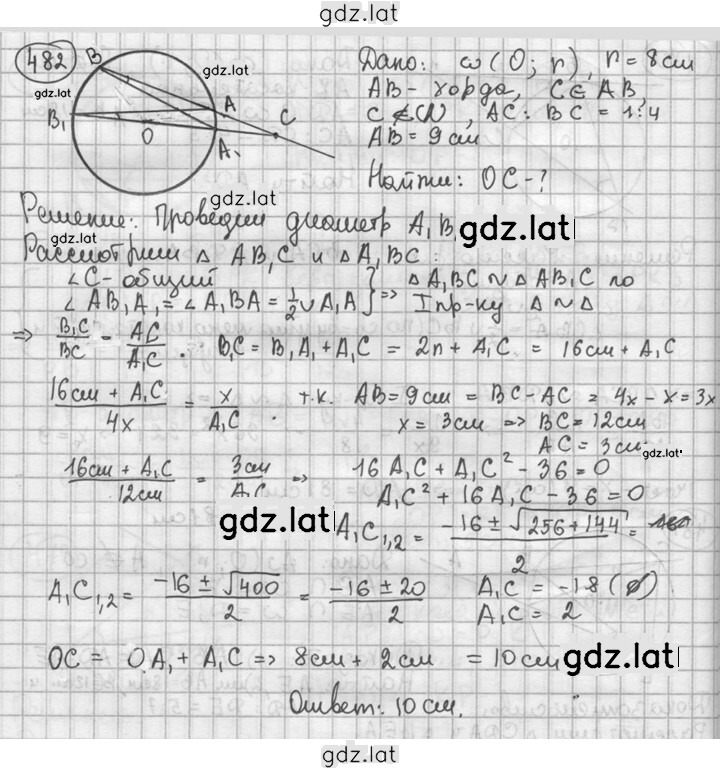 gdz.lat
482
B
gdz.lat
gdz.lat
A
B₁
C
O
A₁
Дано: ω (O; r), r = 8 см
AB - хорда, C ∉ AB,
AC : BC = 1:4
AB = 9 см
Найти: OC - ?
gdz.lat
Решение: Проведём диаметр A₁B₁
gdz.lat
gdz.lat
Рассмотрим △ AB₁C и △ A₁BC :
∠C - общий
∠ AB₁A₁ = ∠ A₁BA = 1/2 ∪ A₁A } => △ A₁BC ~ △ AB₁C по
I пр-ку △ ~ △
=> B₁C/BC = AC/A₁C . B₁C = B₁A₁ + A₁C = 2r + A₁C = 16 см + A₁C
(16 см + A₁C)/4x = x/A₁C . т.к. AB = 9 см = BC - AC = 4x - x = 3x
x = 3 см => BC = 12 см
AC = 3 см
gdz.lat
(16 см + A₁C)/12 см = 3 см/A₁C => 16 A₁C + A₁C² - 36 = 0
A₁C² + 16 A₁C - 36 = 0
gdz.lat
A₁C₁,₂ = (-16 ± √(256 + 144))/2 =
A₁C₁,₂ = (-16 ± √400)/2 = (-16 ± 20)/2 A₁C = -18 (∅)
A₁C = 2
OC = OA₁ + A₁C => 8 см + 2 см = 10 см
gdz.lat
Ответ: 10 см.
gdz.lat